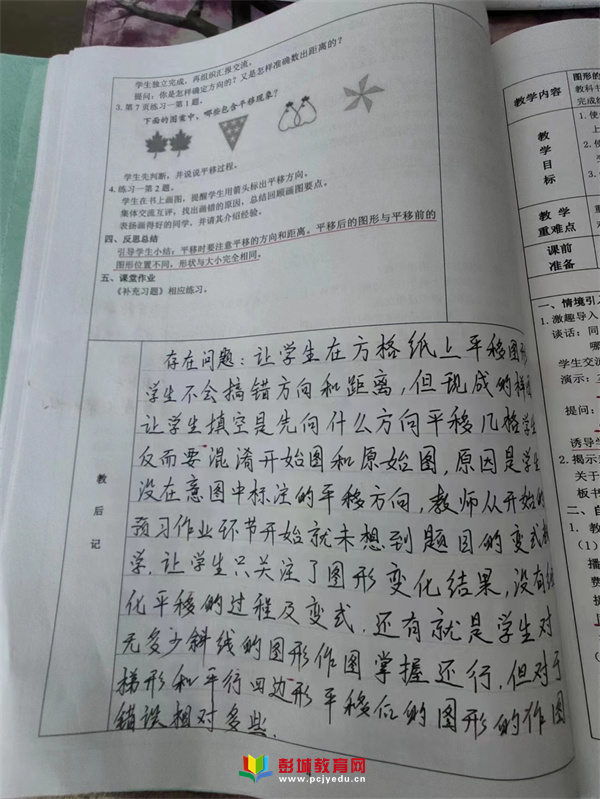 学生独立完成，再组织汇报交流。
提问：你是怎样确定方向的？又是怎样准确数出距离的？
3. 第7页练习一第1题。
下面的图案中，哪些包含平移现象？
学生先判断，并说说平移过程。
4. 练习一第2题。
学生在书上画图，提醒学生用箭头标出平移方向。
集体交流互评，找出画错的原因，总结回顾画图要点。
表扬画得好的同学，并请其介绍经验。
四、反思总结
引导学生小结：平移时要注意平移的方向和距离。平移后的图形与平移前的
图形位置不同，形状与大小完全相同。
五、课堂作业
《补充习题》相应练习。
教后记
存在问题：让学生在方格纸上平移图形
学生不会搞错方向和距离，但现成的样图
让学生填空是先向什么方向平移几格学生
反而要混淆开始图和原始图，原因是学生
没在意图中标注的平移方向，教师从开始的
预习作业环节开始就未想到题目的变式
学，让学生只关注了图形变化结果，没有
化平移的过程及变式．还有就是学生对
无多少斜线的图形作图掌握还行，但对于
梯形和平行四边形平移后的图形的作图
错误相对多些．
教学内容
图形的
教科书
完成
教学目标
1. 使
2.
3.
教学重难点
课前准备
一、情境引
1. 激趣导入
谈话：同
哪
学生交流
演示：
提问：
诱导学
2. 揭示
关于
板书
二、自
1. 教
（1）
播
费
提
（2）
彭城教育网
www.pcjyedu.cn